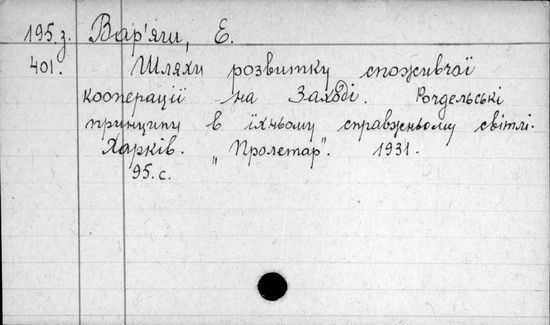 195.з. Вар'яш, Е.
401. Шляхи розвитку споживчої
кооперації на Заході. Рочдельські
принципи в їхньому справжньому світлі.
Харків. "Пролетар". 1931.
95.с.